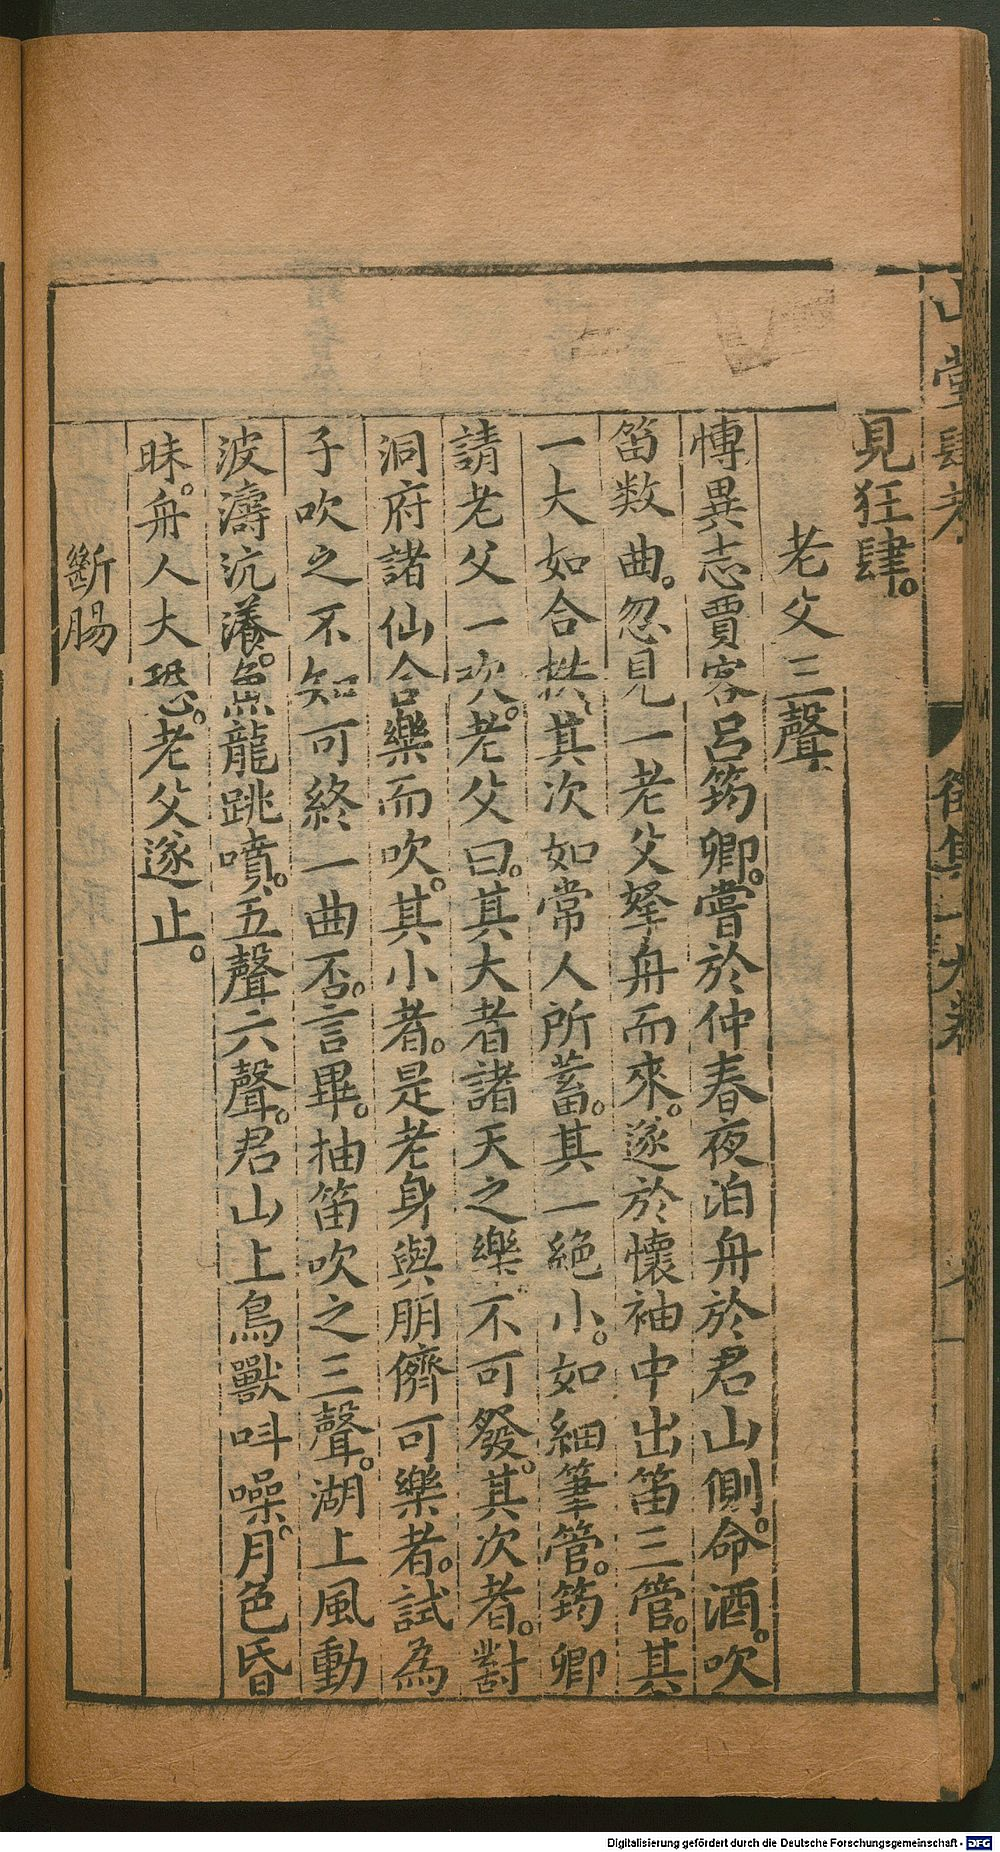 山堂肆考
徵集二十九卷
見狂肆。
老父三聲
博異志賈客呂筠卿。嘗於仲春夜泊舟於君山側。命酒。吹
笛数曲。忽見一老父拏舟而來。遂於懷袖中出笛三管。其
一大如合拱、其次如常人所蓄。其一絕小。如細筆管。筠卿
請老父一吹。老父曰。其大者諸天之樂不可發。其次者。對
洞府諸仙合樂而吹。其小者。是老身與朋儕可樂者。試為
子吹之不知可終一曲否。言畢。抽笛吹之三聲。湖上風動
波濤沆瀁。魚龍跳噴。五聲六聲。君山上鳥獸呌噪。月色昏
昧。舟人大恐。老父遂止。
斷腸
Digitalisierung gefördert durch die Deutsche Forschungsgemeinschaft - DFG